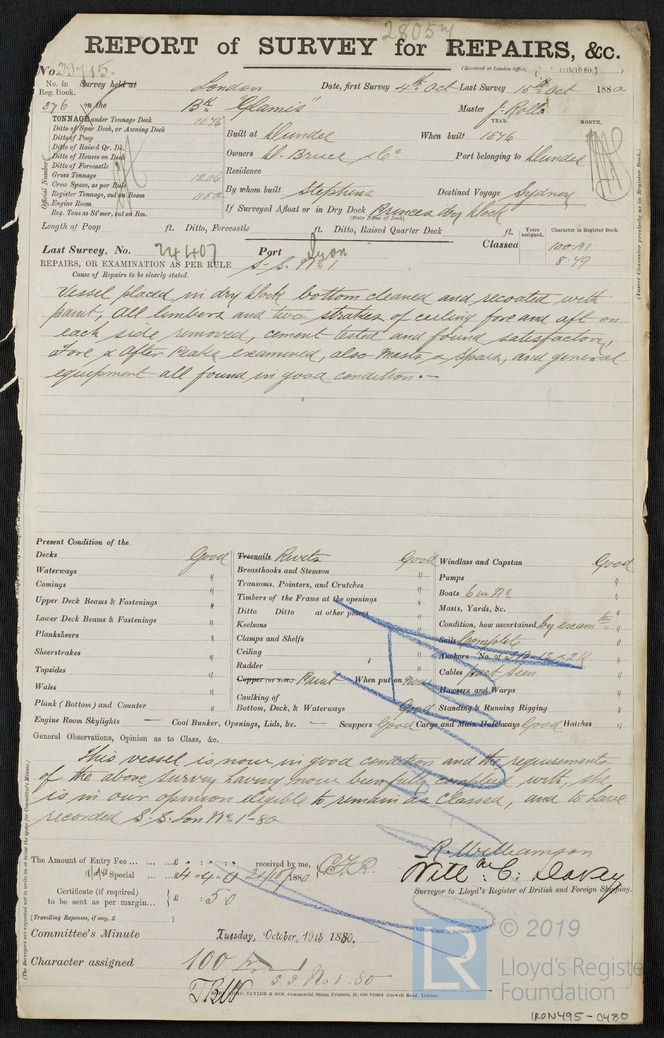 28054
REPORT of SURVEY for REPAIRS, &c.
(Received at London Office,
No. 23715.
No. in Reg. Book. Survey held at London Date, first Survey 4th Oct Last Survey 15th Oct 1880
376 on the Bk "Glamis" Master J. Rolls
TONNAGE under Tonnage Deck 1076
Ditto of Spar Deck, or Awning Deck
Ditto of Poop
Ditto of Raised Qr. Dk.
Ditto of Houses on Deck
Ditto of Forecastle
Gross Tonnage 1206
Crew Space, as per Rule
Register Tonnage, cut on Beam 1150
Engine Room
Reg. Tons as St'mer, cut on Bm.
Official Number
YEAR. MONTH.
Built at Dundee When built 1876
Owners W. Bruce & Co Port belonging to Dundee
Residence
By whom built Stephens Destined Voyage Sydney
If Surveyed Afloat or in Dry Dock Princes dry dock
(State name of Dock)
Length of Poop ft. Ditto, Forecastle ft. Ditto, Raised Quarter Deck ft.
Years assigned. Character in Register Book.
Classed 100A1
8.79
Last Survey, No. 24407 Port Lyon
REPAIRS, OR EXAMINATION AS PER RULE S.S. No 1
Cause of Repairs to be clearly stated.
Vessel placed in dry dock bottom cleaned and recoated with
paint, All limbers and two strakes of ceiling fore and aft on
each side removed, cement tested and found satisfactory,
Fore & After Peaks examined, also Masts & Spars, and general
equipment all found in good condition.—
Present Condition of the
Decks Good
Waterways "
Comings "
Upper Deck Beams & Fastenings "
Lower Deck Beams & Fastenings "
Planksheers "
Sheerstrakes "
Topsides "
Wales "
Plank (Bottom) and Counter "
Treenails Rivets Good
Breasthooks and Stemson "
Transoms, Pointers, and Crutches "
Timbers of the Frame at the openings "
Ditto Ditto at other places "
Keelsons "
Clamps and Shelfs "
Ceiling "
Rudder "
Copper (or Y.M.) Paint When put on now
Caulking of
Bottom, Deck, & Waterways Good
Windlass and Capstan Good
Pumps "
Boats 6 in No. "
Masts, Yards, &c. "
Condition, how ascertained by examtn "
Sails Complete "
Anchors No. of
Cables part seen
Hawsers and Warps "
Standing & Running Rigging "
Engine Room Skylights — Coal Bunker, Openings, Lids, &c. — Scuppers Good Cargo and Main Hatchways Good Hatches "
General Observations, Opinion as to Class, &c.
This vessel is now in good condition and the requirements
of the above Survey having now been fully complied with, she
is in our opinion eligible to remain as classed, and to have
recorded S.S. Lon No. 1-80
R. Williamson
Surveyor to Lloyd's Register of British and Foreign Shipping.
The Amount of Entry Fee ... ... £ : : received by me,
Special ... £ 4.4.0
Certificate (if required) to be sent as per margin... £ : 5 0
(Travelling Expenses, if any, £ )
Committee's Minute Tuesday, October, 19th 1880.
Character assigned 100 A 1
S.S. No 1-80
TAYLOR & SON, Commercial Steam Printers, 19, Old Street Goswell Road, London.
© 2019
LR
Lloyd's Register
Foundation
IRON495-0480